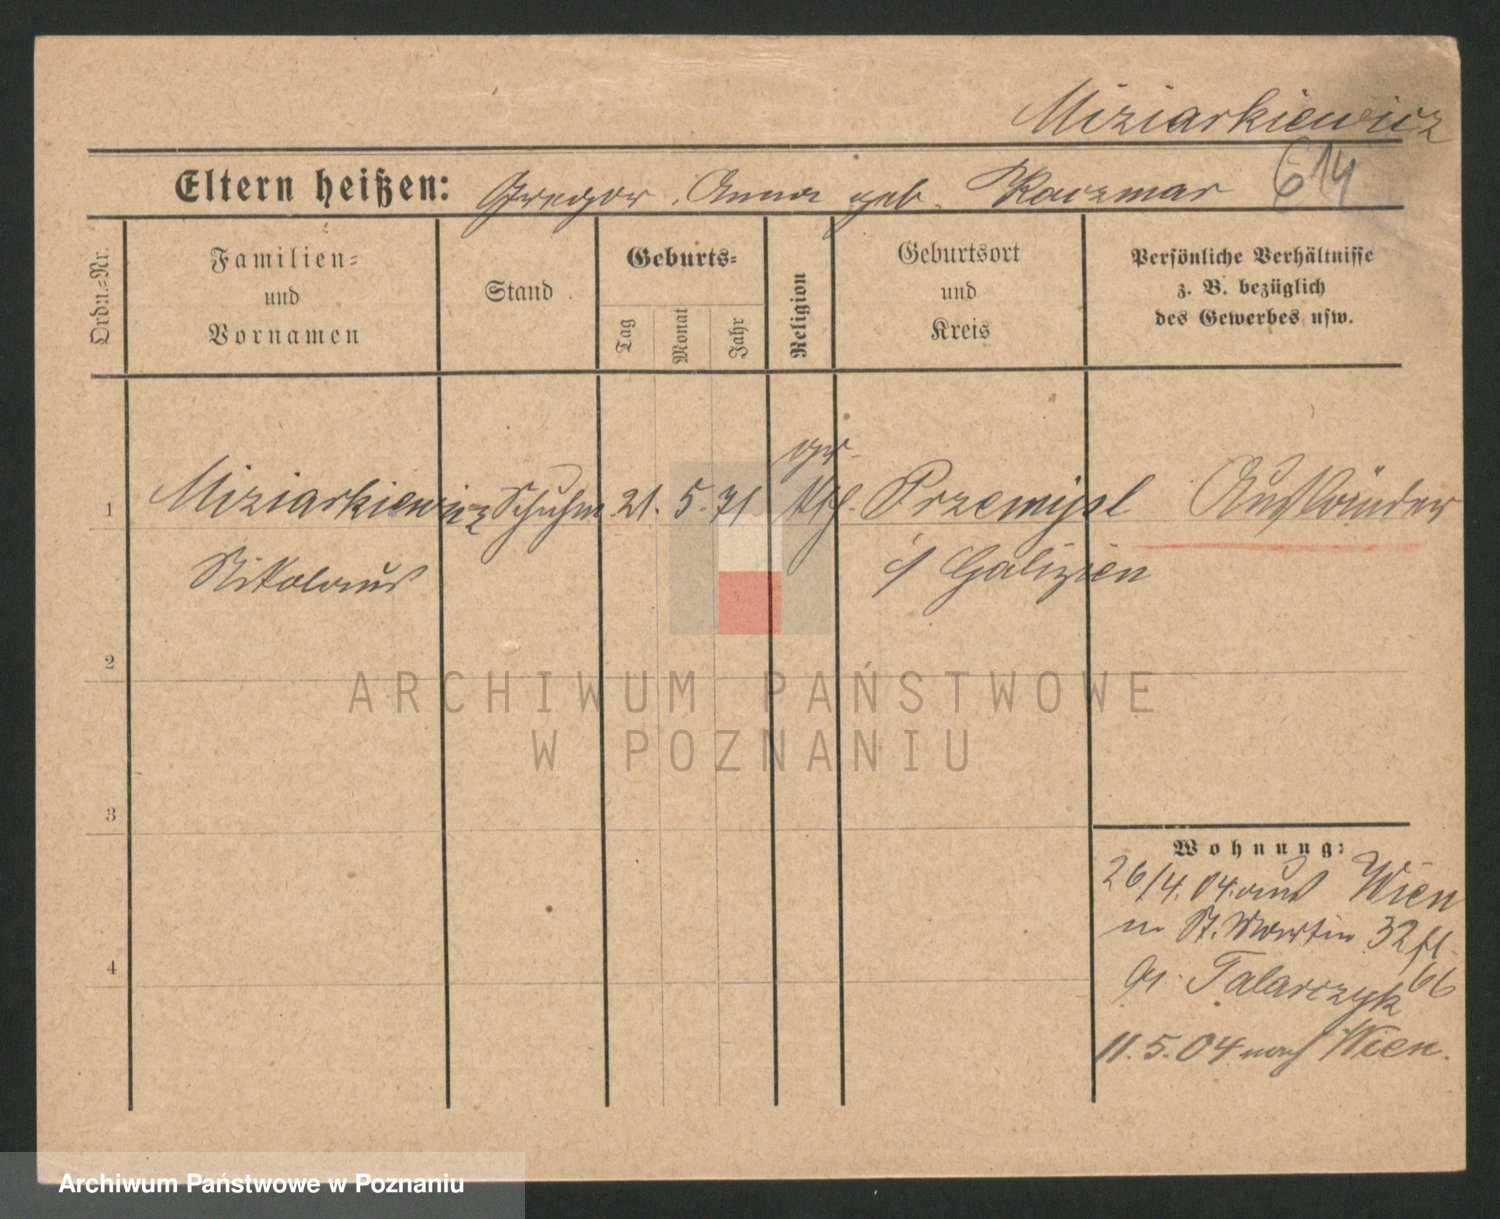 Miziarkiewicz
614
Eltern heißen: Gregor, Anna geb. Kaczmar
Ordn.=Nr.
Familien=
und
Vornamen
Stand
Geburts=
Tag
Monat
Jahr
Religion
Geburtsort
und
Kreis
Persönliche Verhältnisse
z. B. bezüglich
des Gewerbes usw.
gr.
1 Miziarkiewicz Schuhm 21. 5. 71 kth. Przemysl Ausländer
Nikolaus i/ Galizien
2
ARCHIWUM PAŃSTWOWE
W POZNANIU
3
Wohnung:
26/4. 04. aus Wien
n. St. Martin 32
4
Talarczyk 66
11. 5. 04 nach Wien.
Archiwum Państwowe w Poznaniu